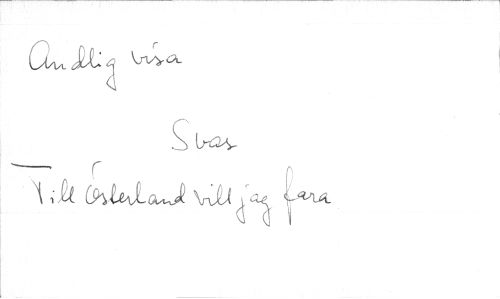 Andlig visa
Svar
Till Österland vill jag fara